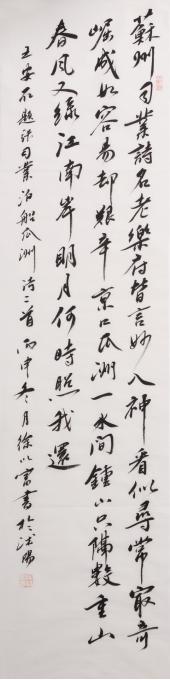 蘇州司業詩名老樂府皆言妙入神看似尋常最奇
崛成如容易却艱辛京口瓜洲一水間鍾山只隔數重山
春風又綠江南岸明月何時照我還
王安石題張司業泊船瓜洲詩二首丙申冬月徐以富書於沈陽